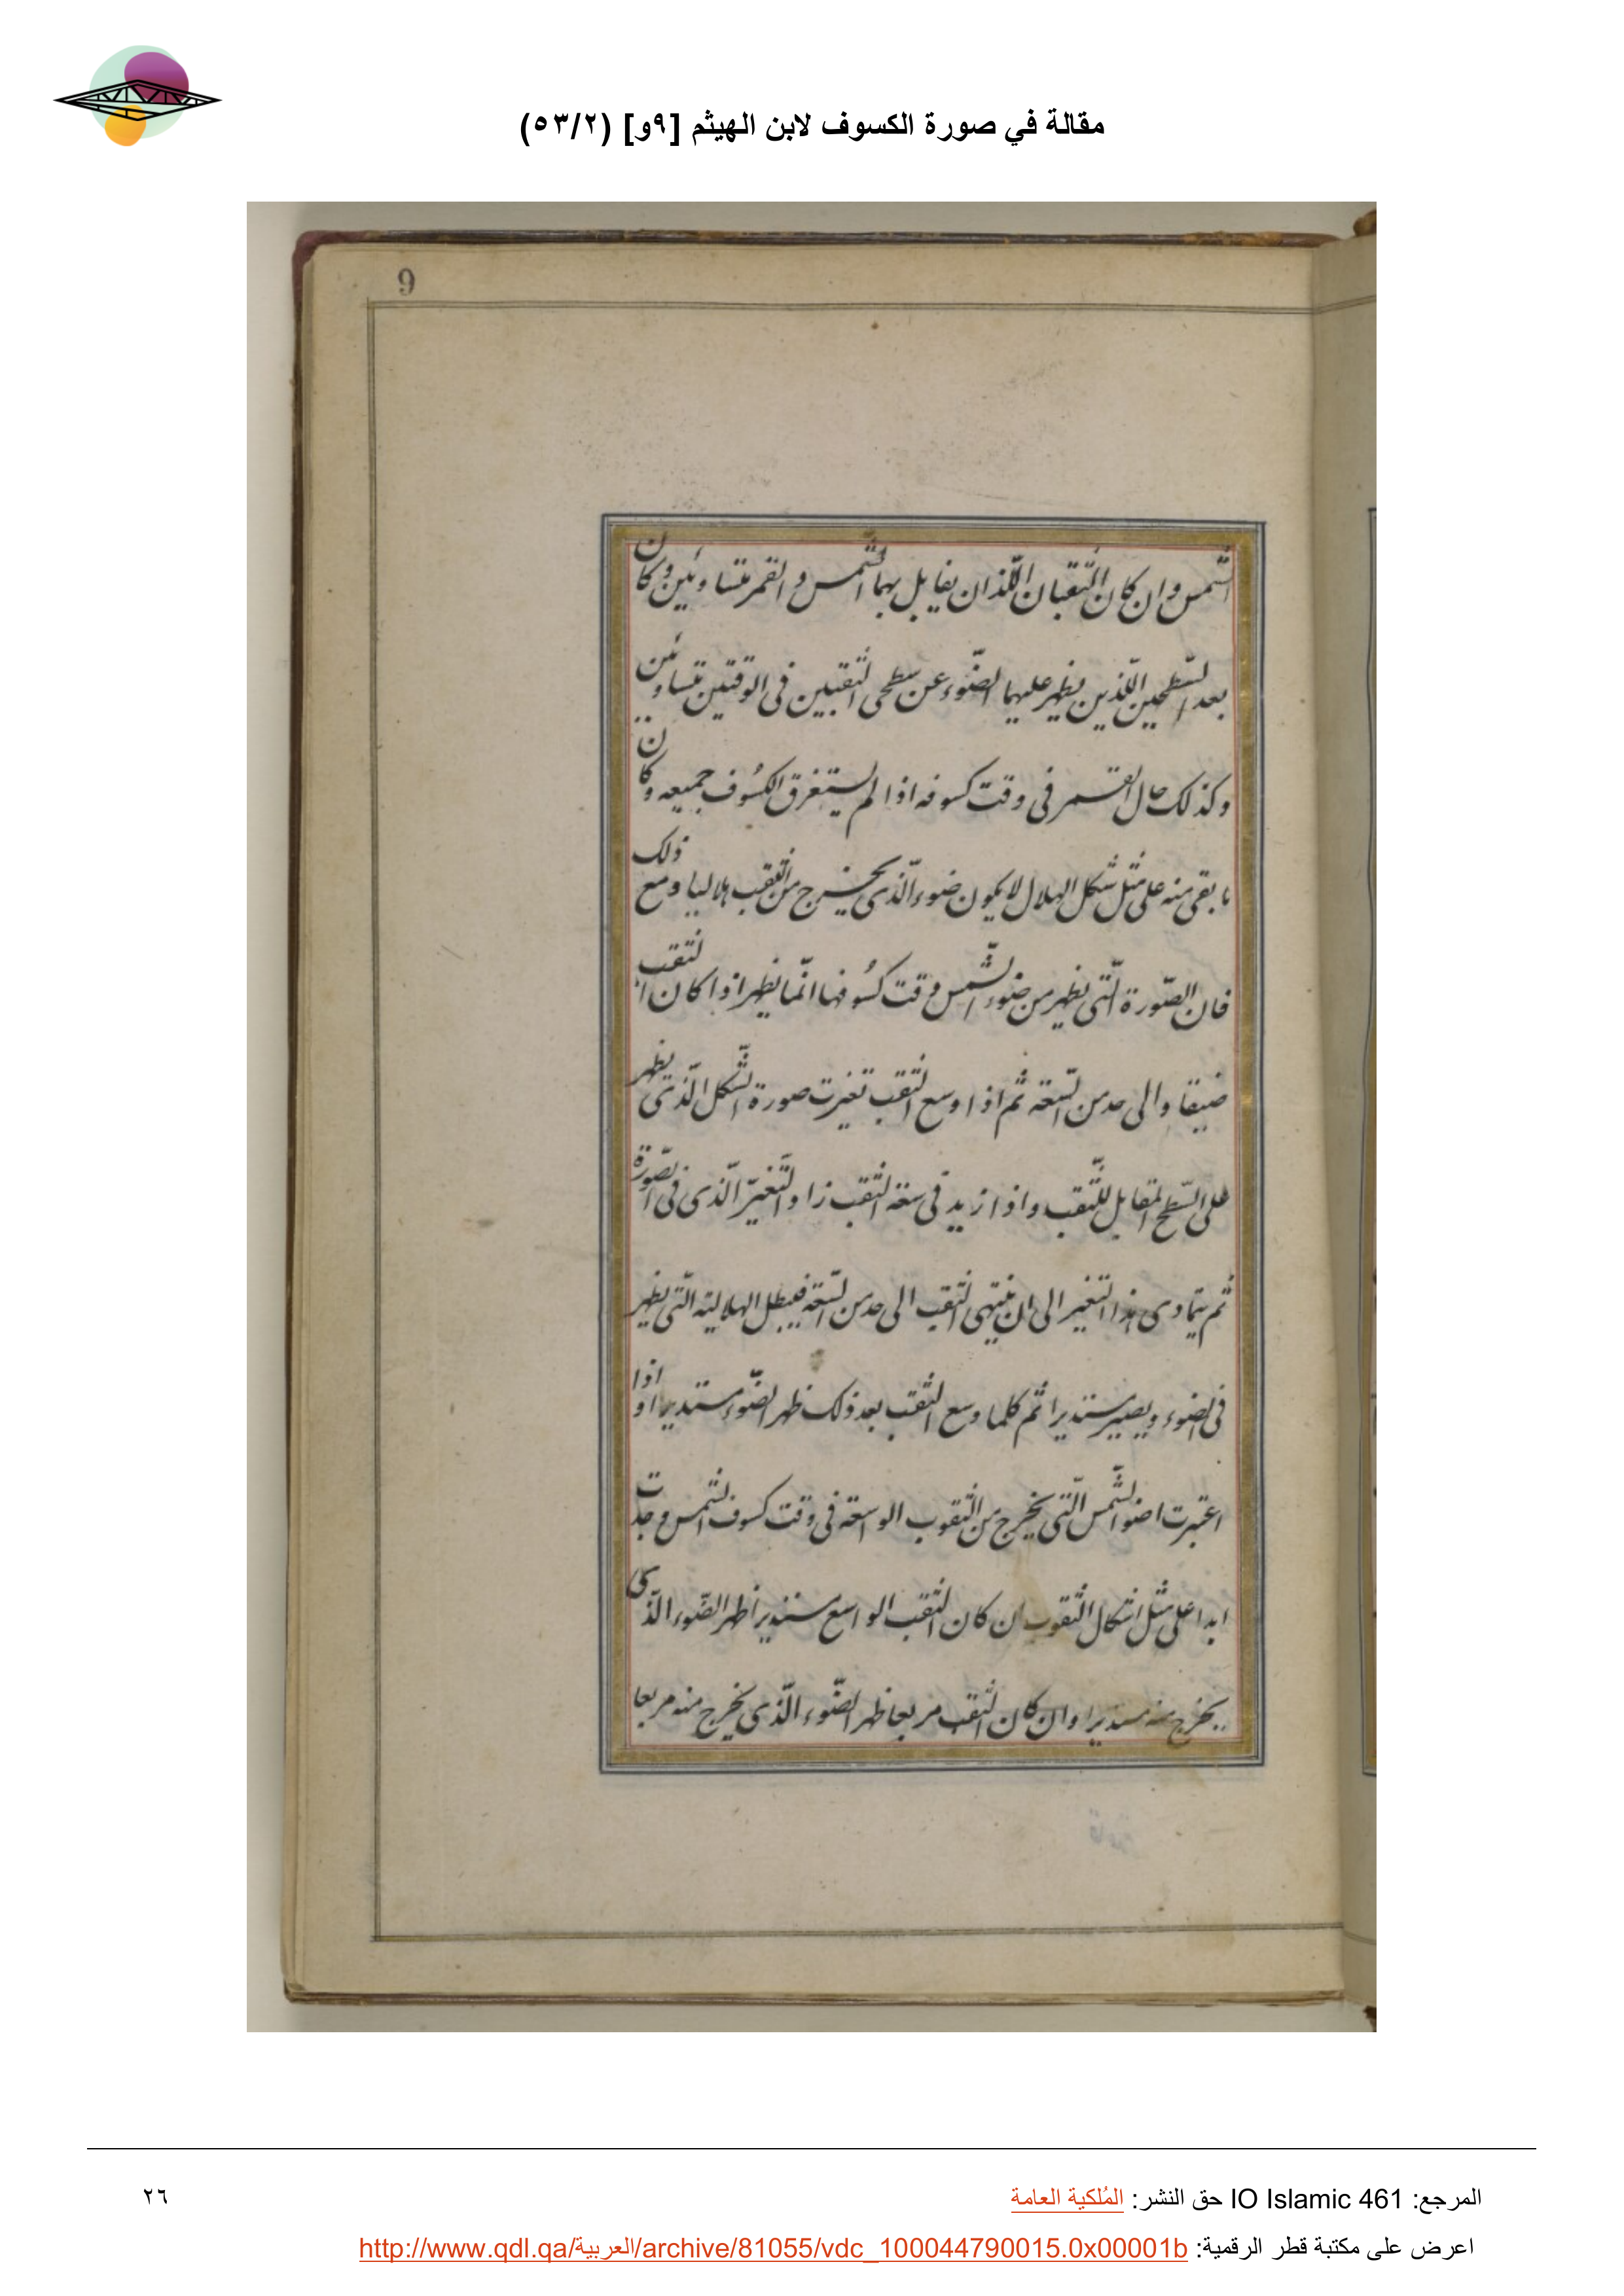 مقالة في صورة الكسوف لابن الهيثم [٩و] (٥٣/٢)
9
الشمس وان كان الثقبان اللذان يقابل بهما الشمس والقمر متساويين وكان
بعد السطحين اللذين يظهر عليهما الضوء عن سطحى الثقبين فى الوقتين متساويين
وكذلك حال القمر فى وقت كسوفه اذا لم يستغرق الكسوف جميعه وكان
ما بقى منه على مثل شكل الهلال لا يكون ضوء الذى يخرج من الثقب هلاليا ومع ذلك
فان الصورة التى يظهر من ضوء الشمس وقت كسوفها انما يظهر اذا كان الثقب
ضيقا والى حد من السعة ثم اذا وسع الثقب تغيرت صورة الشكل الذى يظهر
على السطح المقابل للثقب واذا ازيد فى سعة الثقب زاد التغير الذى فى الصورة
ثم يتمادى هذا التغير الى ان ينتهى الثقب الى حد من السعة فيبطل الهلالية التى يظهر
فى الضوء ويصير مستديرا ثم كلما وسع الثقب بعد ذلك ظهر الضوء مستديرا واذا
اعتبرت اضوا الشمس التى يخرج من الثقوب الواسعة فى وقت كسوف الشمس وجدت
ابدا على مثل اشكال الثقوب ان كان الثقب الواسع مستديرا ظهر الضوء الذى
يخرج منه مستديرا وان كان الثقب مربعا ظهر الضوء الذى يخرج منه مربعا
المرجع: IO Islamic 461 حق النشر: المُلكية العامة
٢٦
اعرض على مكتبة قطر الرقمية: http://www.qdl.qa/العربية/archive/81055/vdc_100044790015.0x00001b